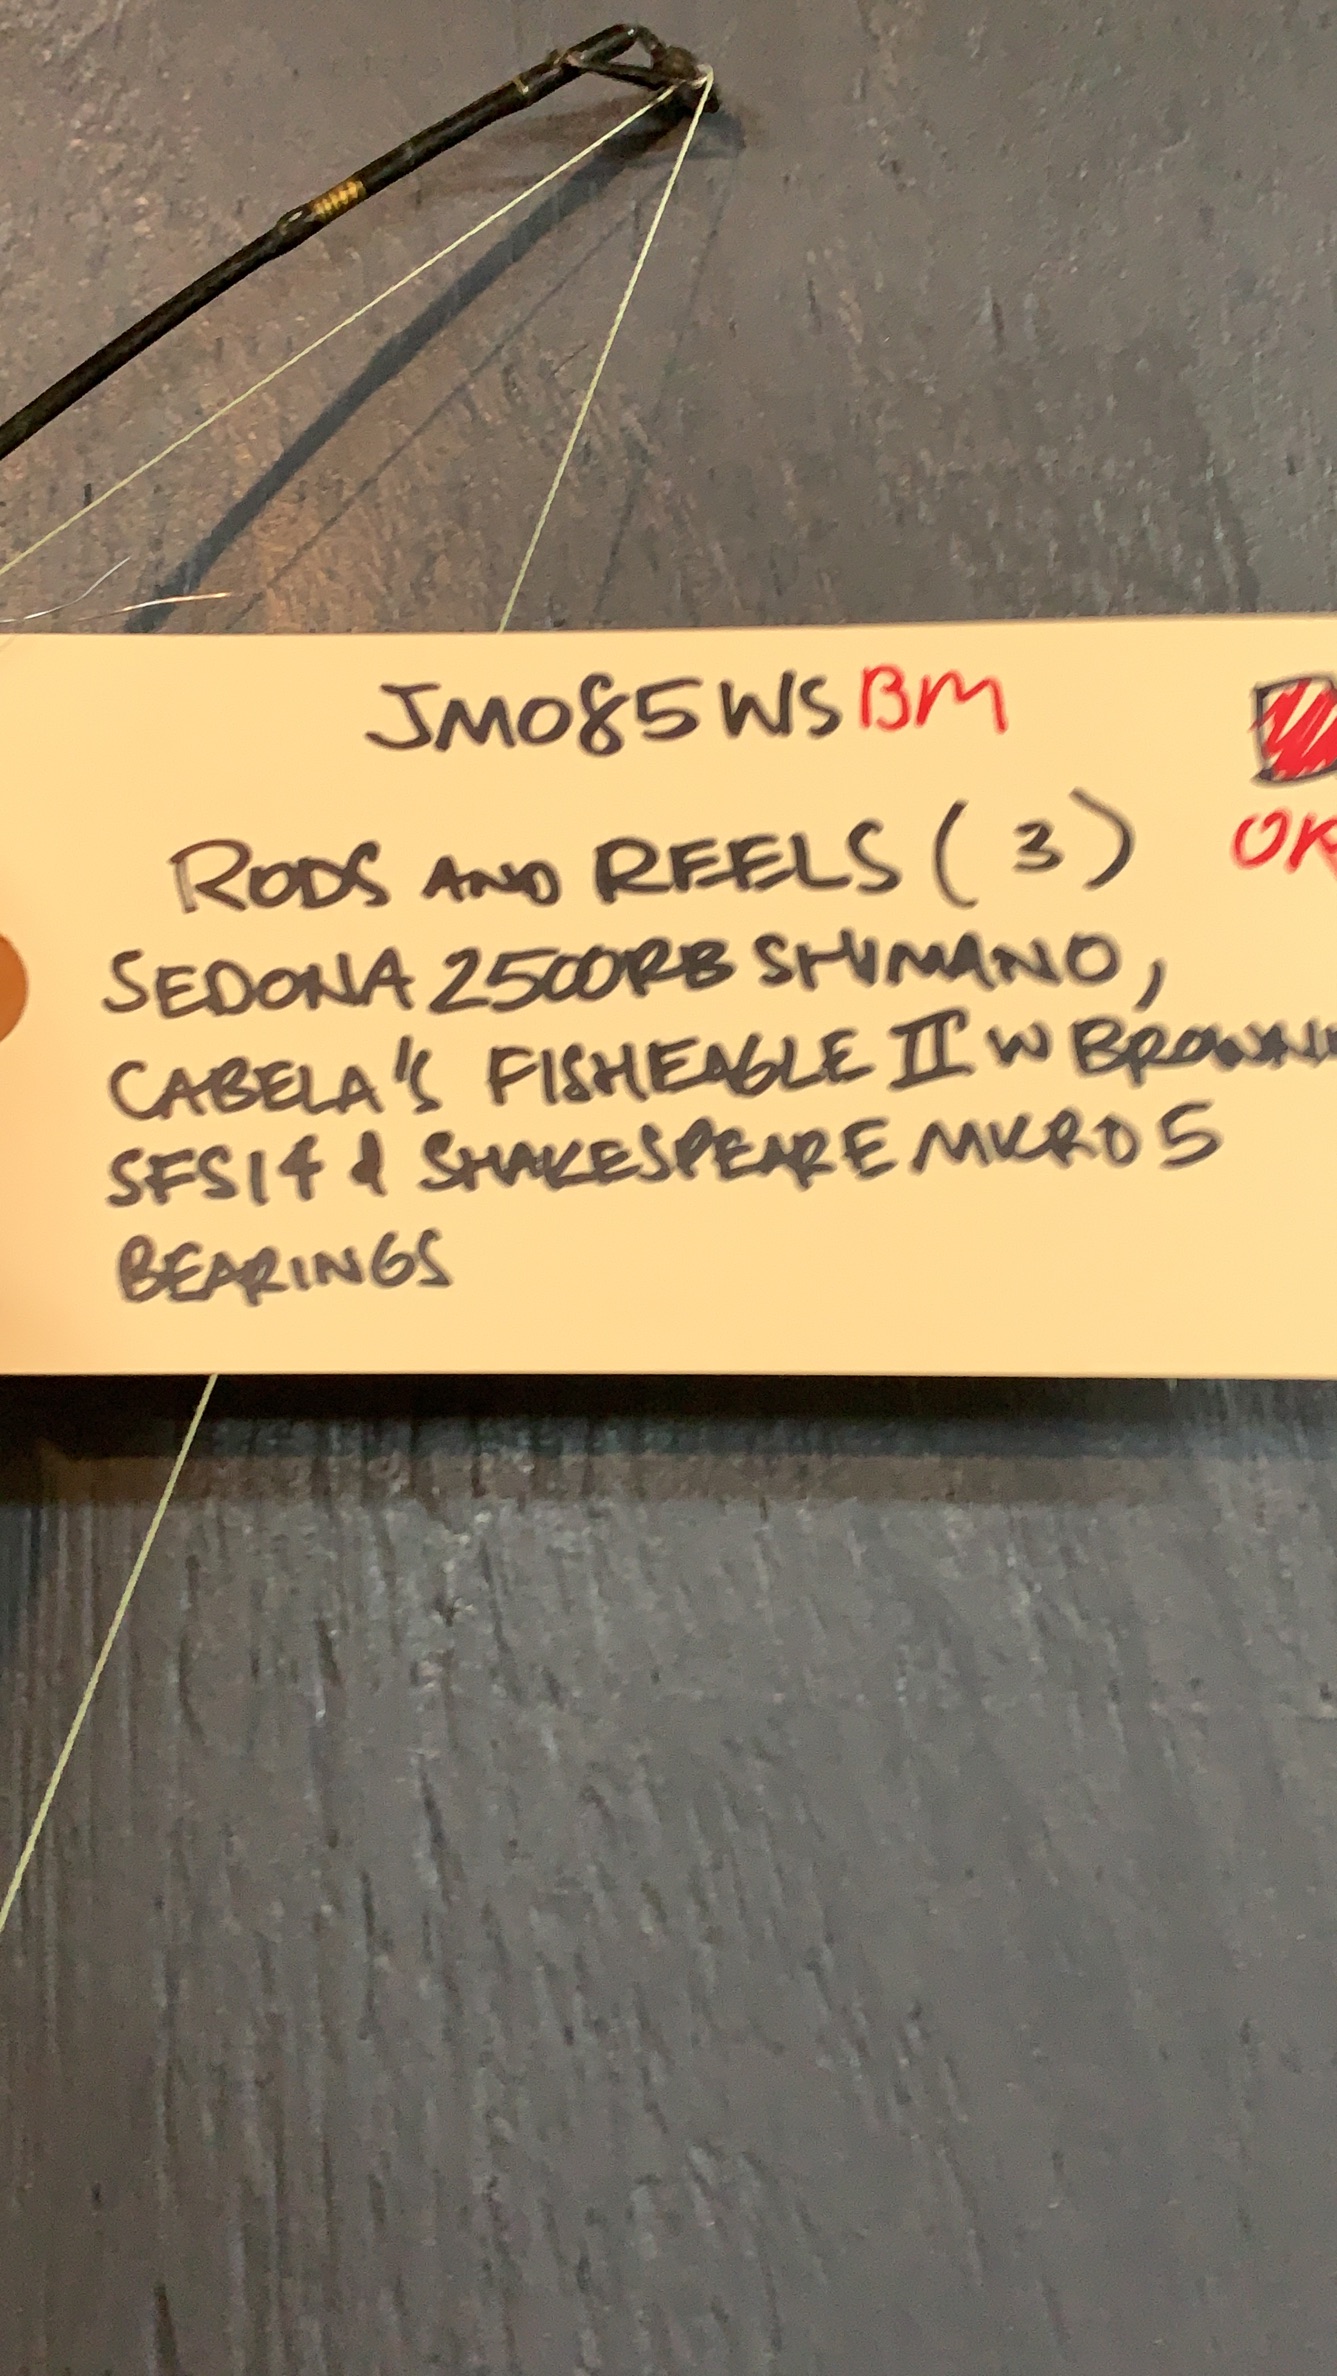 JM085WSBM
OK
RODS AND REELS (3)
SEDONA 2500RB SHIMANO,
CABELA'S FISHEAGLE II W
SFS14 & SHAKESPEARE MICRO 5
BEARINGS